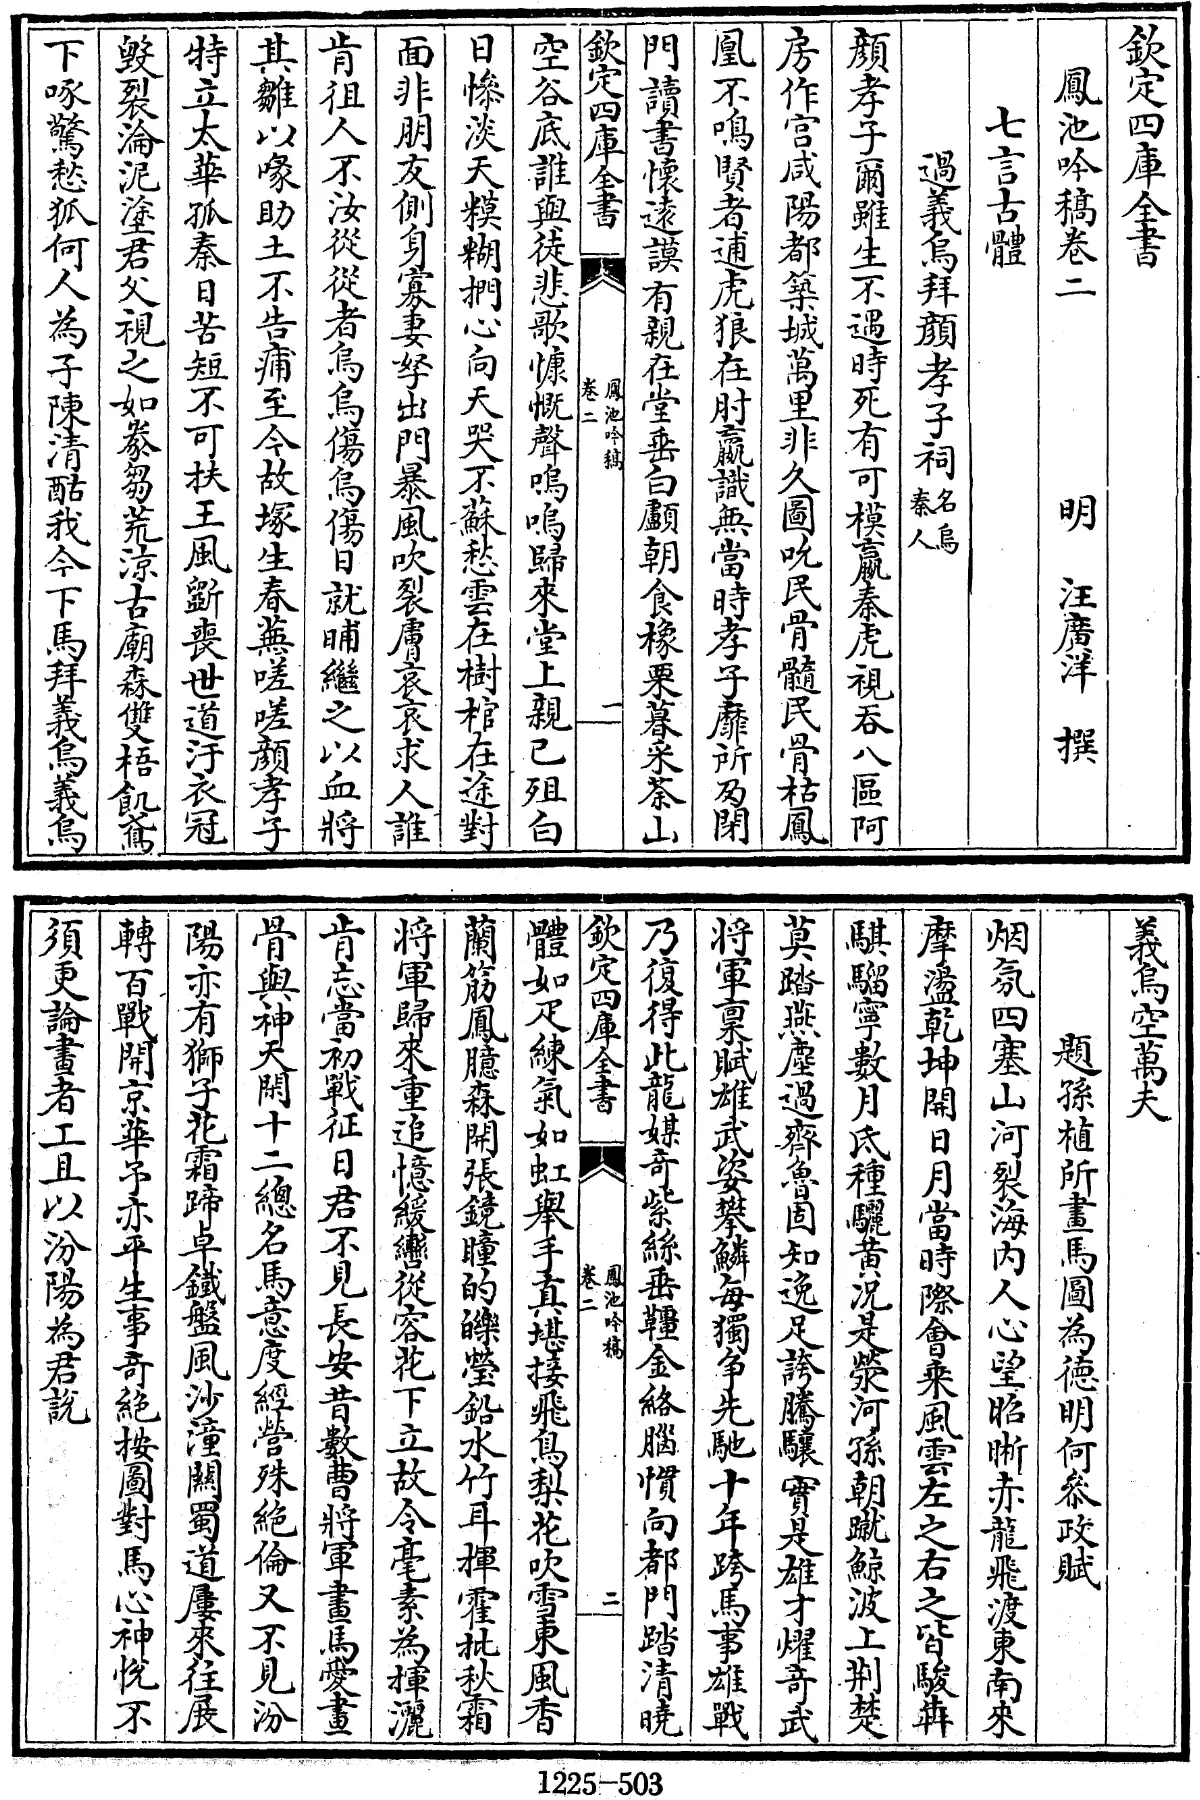 欽定四庫全書
鳳池吟稿卷二　明　汪廣洋　撰
七言古體
過義烏拜顔孝子祠名烏秦人
顔孝子爾雖生不遇時死有可模嬴秦虎視吞八區阿
房作宫咸陽都築城萬里非久圖吮民骨髓民骨枯鳳
凰不鳴賢者逋虎狼在肘嬴識無當時孝子靡所及閉
門讀書懷遠謨有親在堂垂白顱朝食橡栗暮采荼山
欽定四庫全書
鳳池吟稿
卷二
一
空谷底誰與徒悲歌慷慨聲嗚嗚歸來堂上親已殂白
日慘淡天糢糊捫心向天哭不蘇愁雲在樹棺在途對
面非朋友側身寡妻孥出門暴風吹裂膚哀哀求人誰
肯徂人不汝從從者烏烏傷烏傷日就晡繼之以血將
其雛以喙助土不告痡至今故塚生春蕪嗟嗟顔孝子
特立太華孤秦日苦短不可扶王風斵喪世道汙衣冠
毁裂淪泥塗君父視之如豢芻荒凉古廟森雙梧飢鳶
下啄驚愁狐何人為子陳清酤我今下馬拜義烏義烏
義烏空萬夫
題孫植所畫馬圖為德明何叅政賦
烟氛四塞山河裂海内人心望昭晰赤龍飛渡東南來
摩盪乾坤開日月當時際會乗風雲左之右之皆駿犇
騏騮寧數月氐種驪黄况是滎河孫朝蹴鯨波上荆楚
莫踏燕塵過齊魯固知逸足誇騰驤實是雄才燿奇武
將軍禀賦雄武姿攀鱗每獨争先馳十年跨馬事雄戰
乃復得此龍媒奇紫絲垂韁金絡腦慣向都門踏清曉
欽定四庫全書
鳳池吟稿
卷二
二
體如疋練氣如虹舉手真堪接飛鳥梨花吹雪東風香
蘭筋鳳臆森開張鏡瞳的皪瑩鉛水竹耳揮霍批秋霜
將軍歸來重追憶緩轡從容花下立故令毫素為揮灑
肯忘當初戰征日君不見長安昔數曹將軍畫馬愛畫
骨與神天閑十二總名馬意度經營殊絶倫又不見汾
陽亦有獅子花霜蹄卓鐵盤風沙潼關蜀道屢來往展
轉百戰開京華予亦平生事奇絶按圖對馬心神恱不
須更論畫者工且以汾陽為君説
1225—503